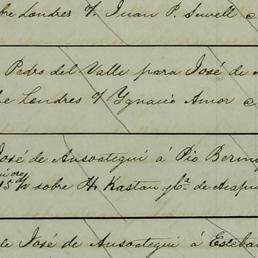 bre Londres s/ Juan P. Sewell
Pedro del Valle para José de
Londres s/ Ygnacio Amor
José de Ansoategui á Pio Bering
15 % sobre H. Kastan y Ca. de Acapu
de José de Ansoategui á Esteba